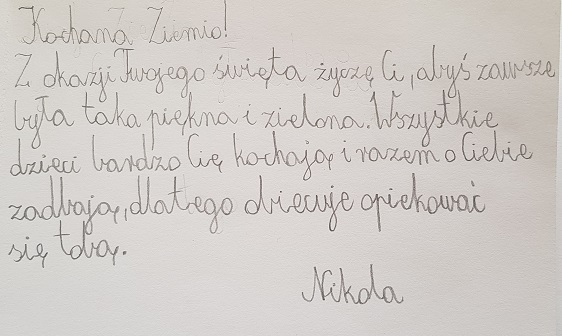 Kochana Ziemio!
Z okazji Twojego święta życzę Ci, abyś zawsze
była taka piękna i zielona. Wszystkie
dzieci bardzo Cię kochają i razem o Ciebie
zadbają, dlatego obiecuje opiekować
się tobą.
Nikola